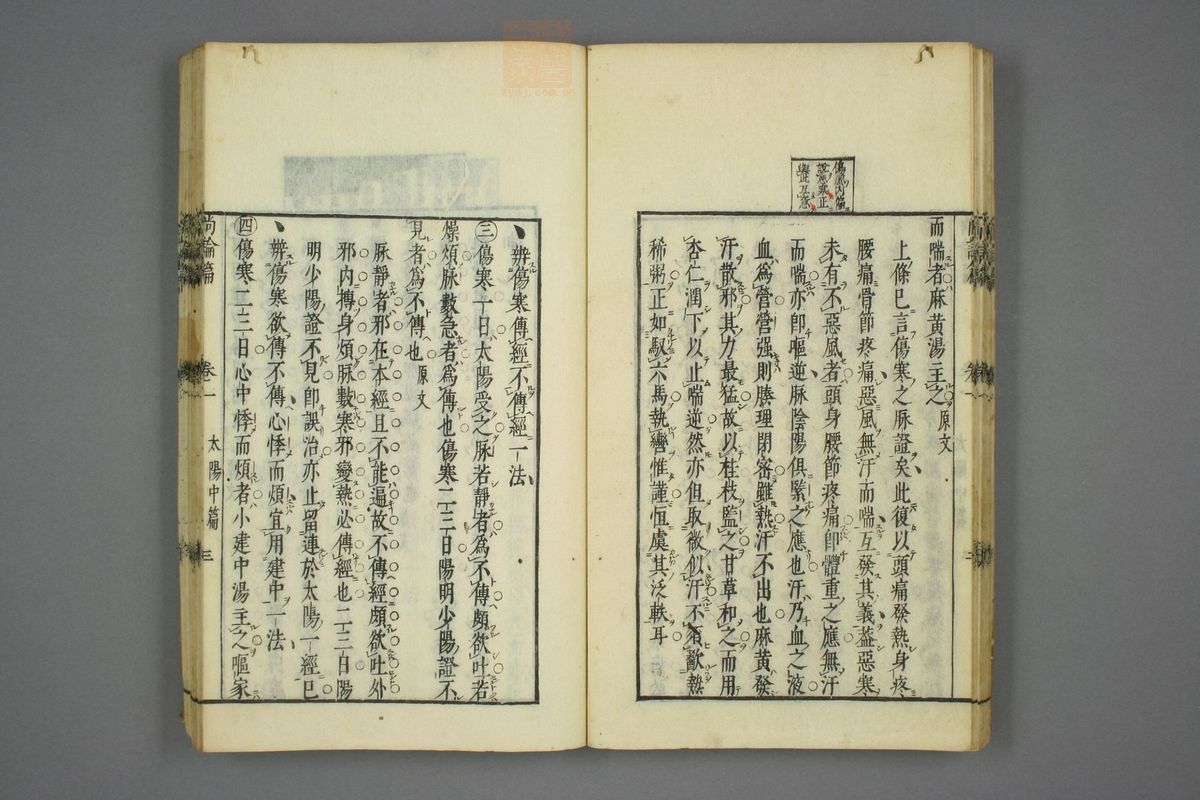 傷風內偏
而喘者麻黃湯主之原文
上條已言傷寒之脉證矣此復以頭痛發熱身疼
腰痛骨節疼痛惡風無汗而喘互發其義蓋惡寒
未有不惡風者頭身腰節疼痛卽體重之應無汗
而喘亦卽嘔逆脉陰陽俱緊之應也汗乃血之液
血爲營營强則腠理閉密雖熱汗不出也麻黃發
汗散邪其力最猛故以桂枝監之甘草和之而用
杏仁潤下以止喘逆然亦但取微似汗不須歠熱
稀粥正如馭六馬執轡惟謹恒虞其泛軼耳
辨傷寒傳經不傳經一法
㊂傷寒一日太陽受之脉若靜者爲不傳頗欲吐若
燥煩脉數急者爲傳也傷寒二三日陽明少陽證不
見者爲不傳也原文
脉靜者邪在本經且不能遍故不傳經頗欲吐外
邪內搏身煩脉數寒邪變熱必傳經也二三日陽
明少陽證不見卽誤治亦止留連於太陽一經已
辨傷寒欲傳不傳心悸而煩宜用建中一法
㊃傷寒二三日心中悸而煩者小建中湯主之嘔家
尚論篇 卷一 太陽中篇 三